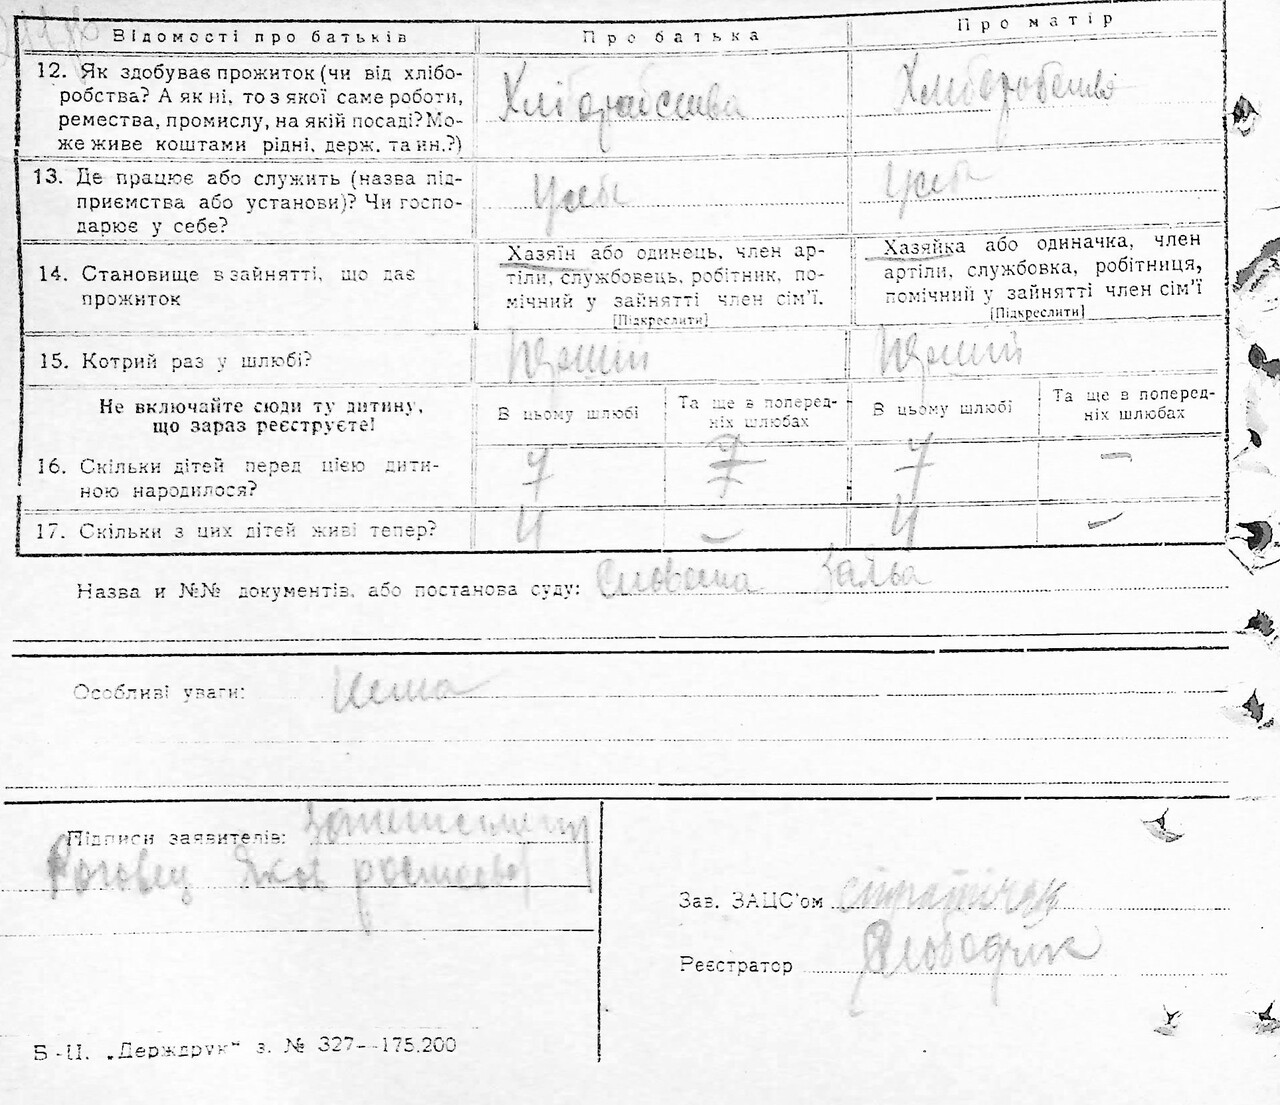 Відомості про батьків
Про батька
Про матір
12. Як здобуває прожиток (чи від хлібо-
робства? А як ні, то з якої саме роботи,
ремества, промислу, на якій посаді? Мо-
же живе коштами рідні, держ. та ин.?)
Хліборобства
Хліборобства
13. Де працює або служить (назва під-
приємства або установи)? Чи госпо-
дарює у себе?
У себе
У себе
14. Становище в зайнятті, що дає
прожиток
Хазяїн або одинець, член ар-
тіли, службовець, робітник, по-
мічний у зайнятті член сім'ї.
[Підкреслити]
Хазяйка або одиначка, член
артіли, службовка, робітниця,
помічний у зайнятті член сім'ї
[Підкреслити]
15. Котрий раз у шлюбі?
Не включайте сюди ту дитину,
що зараз реєструєте!
В цьому шлюбі
Та ще в поперед-
ніх шлюбах
В цьому шлюбі
Та ще в поперед-
ніх шлюбах
16. Скільки дітей перед цією дити-
ною народилося?
7
7
—
17. Скільки з цих дітей живі тепер?
4
—
4
—
Назва и №№ документів, або постанова суду: Словесна заява
Особливі уваги: Нема
Підписи заявителів:
Роговец Яков
Зав. ЗАЦС'ом
Реєстратор
Б-Ц. „Держдрук" з. № 327—175.200